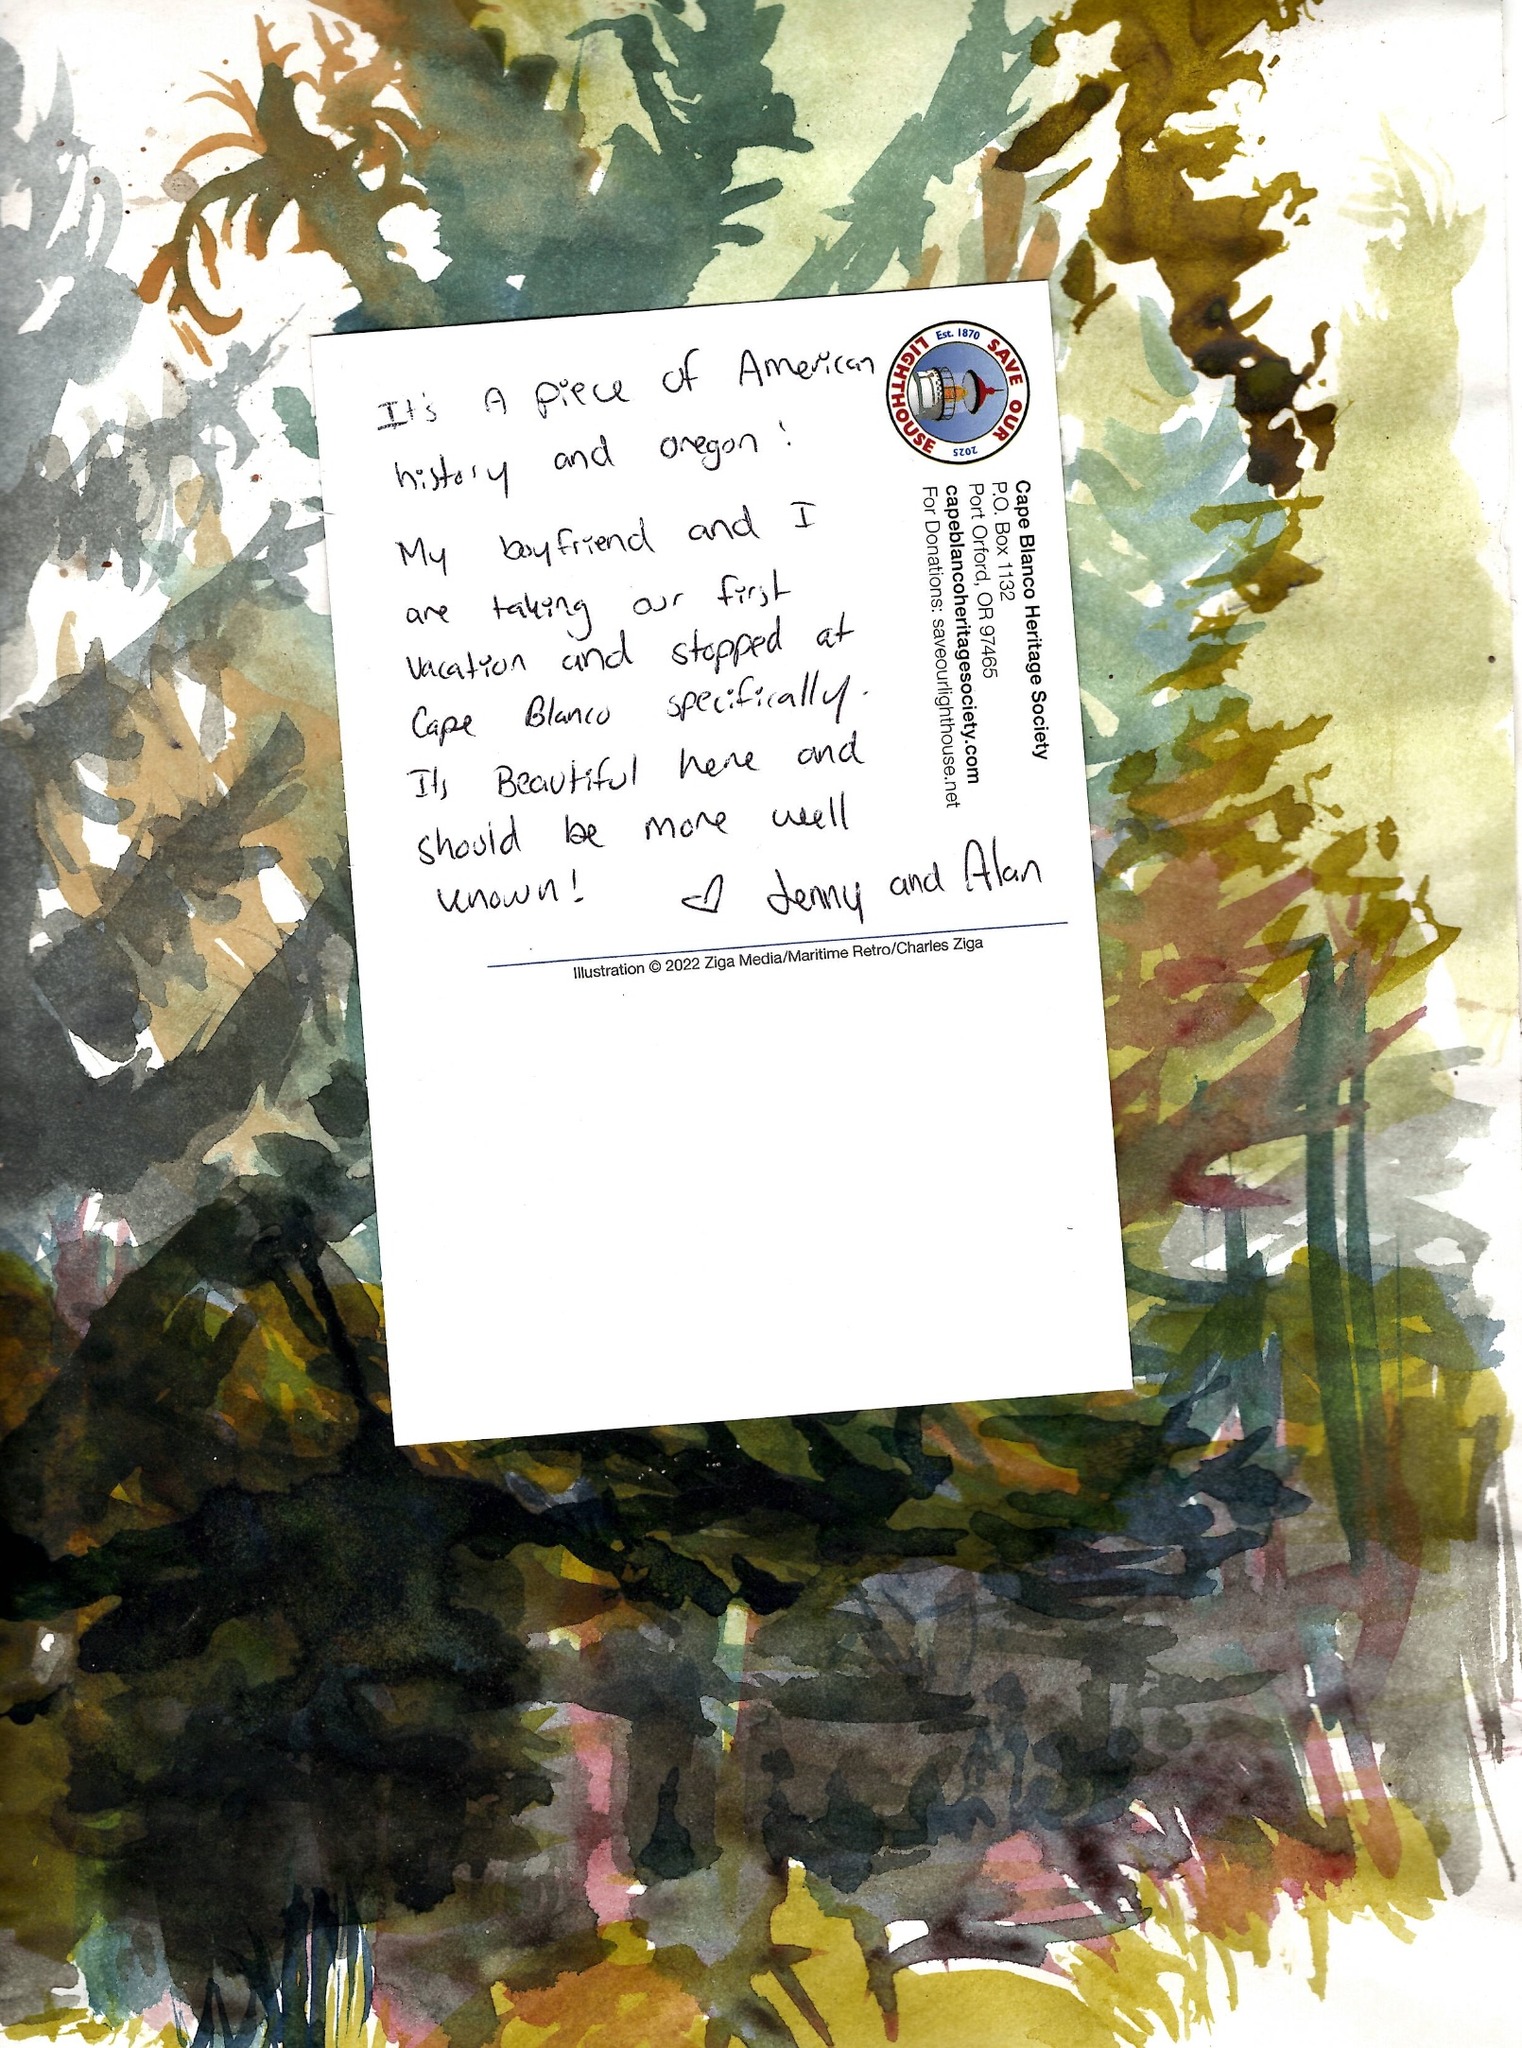 It's A piece of American
history and oregon!
My boyfriend and I
are taking our first
vacation and stopped at
Cape Blanco specifically.
Its Beautiful here and
should be more well
known!
♡ Jenny and Alan
Est. 1870
SAVE OUR
LIGHTHOUSE
2025
Cape Blanco Heritage Society
P.O. Box 1132
Port Orford, OR 97465
capeblancoheritagesociety.com
For Donations: saveourlighthouse.net
Illustration © 2022 Ziga Media/Maritime Retro/Charles Ziga